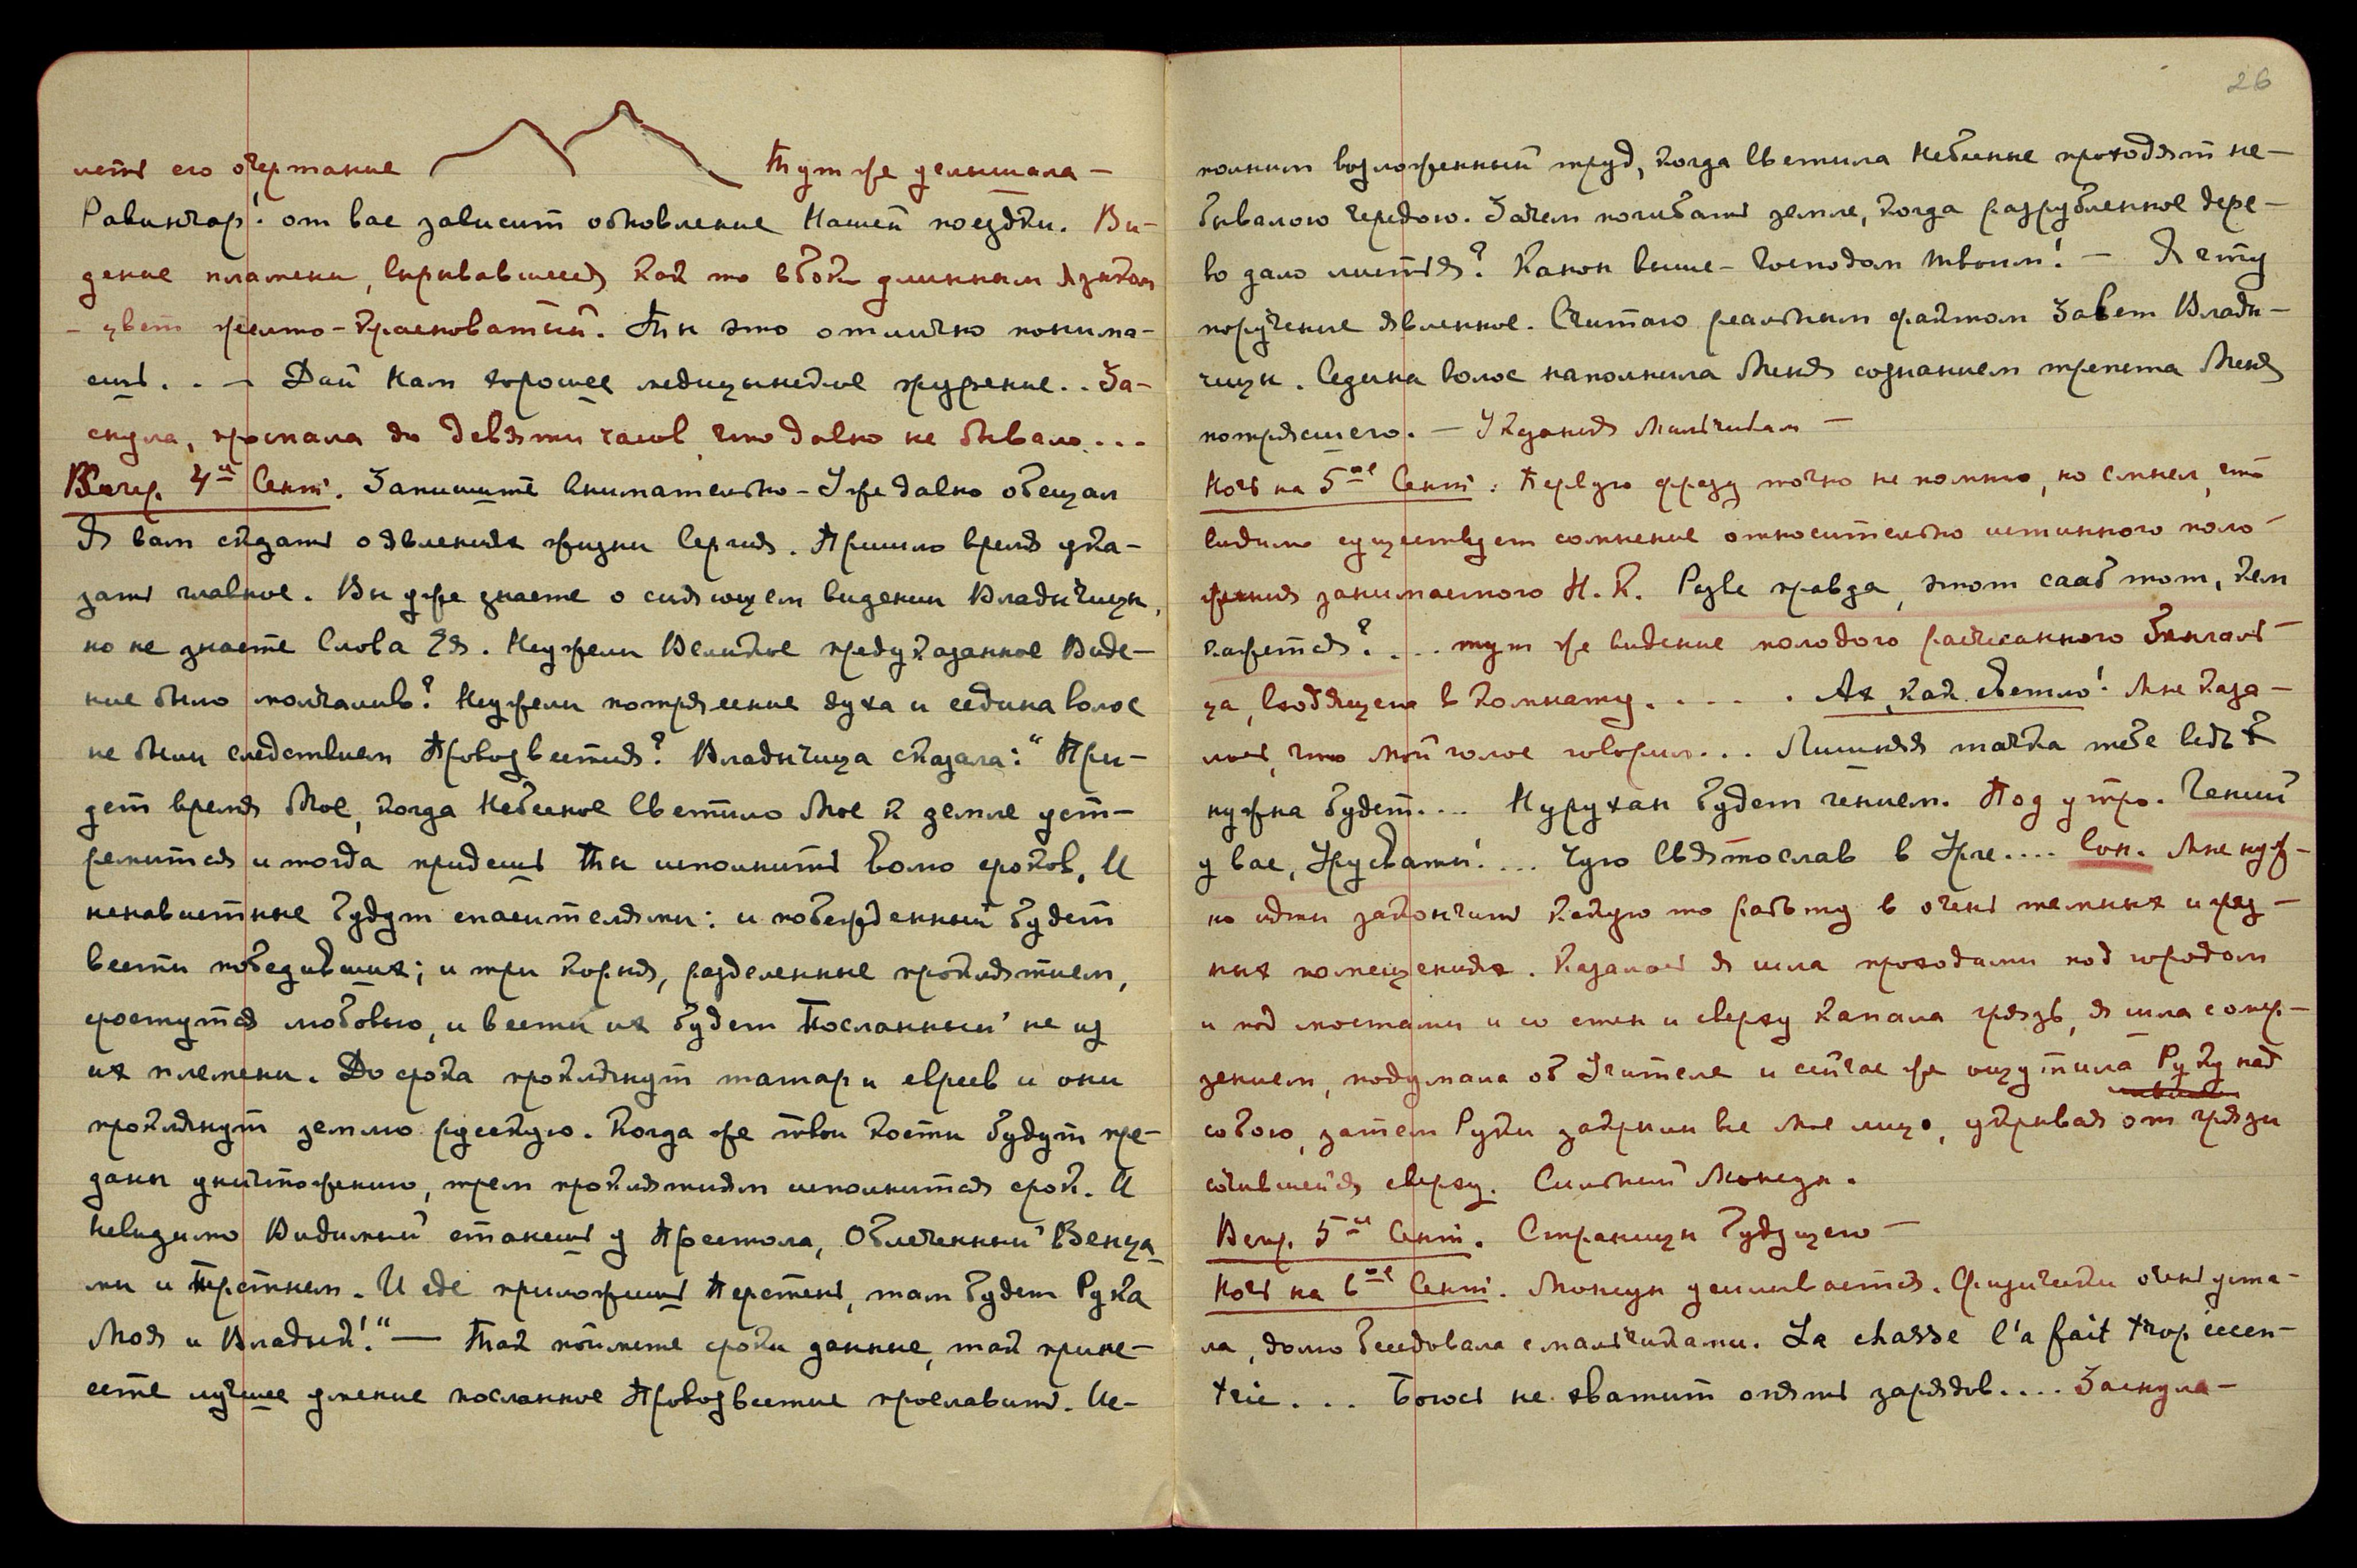 леть его очертание Тут же услышала –
Равинчар! от вас зависит обновление Нашей поездки. Ви-
дение пламени, вырывавшееся как то вбок длинным языком
– цвет желто-красноватый. Ты это отлично понима-
ешь. . – Дай нам хорошее медицинское суждение. . За-
снула, проспала до девяти часов, что давно не бывало. . .
Вечер. 4-й Сент. Запишите внимательно – Уже давно обещал
Я вам сказать о явлениях жизни Сергия. Пришло время ука-
зать главное. Вы уже знаете о сияющем видении Владычицы,
но не знаете Слова Ея. Неужели Великое предуказанное Виде-
ние было молчаливо? Неужели потрясение духа и седина волос
не были следствием Провозвестия? Владычица сказала: "При-
дет время Мое, когда Небесное Светило Мое к земле уст-
ремится и тогда придешь Ты исполнить волю сроков. И
ненавистные будут спасителями: и побежденный будет
вести победивших; и три корня, разделенные проклятием,
срастутся любовью, и вести их будет Посланный не из
их племени. До срока проклянут татар и евреев и они
проклянут землю русскую. Когда же твои кости будут пре-
даны уничтожению, трем проклятиям исполнится срок. И
невидимо Видимый станешь у Престола, Облеченный Венца-
ми и Перстнем. И где приложишь Перстень, там будет Рука
Моя и Владык!" – Так поймете сроки данные, так прине-
сете лучшее умение посланное Провозвестие прославить. Ис-
26
полним возложенный труд, когда Светила Небесные проходят не-
бывалою чередою. Зачем погибать земле, когда разрубленное дере-
во дало листья? Канон выше – Господом твоим! – Я чту
поручение явленное. Считаю реальным фактом Завет Влады-
чицы. Седина волос наполнила Меня сознанием трепета Меня
потрясшего. – Указания мальчикам –
Ночь на 5-ое Сент: Первую фразу точно не помню, но смысл, что
видимо существует сомнение относительно истинного поло-
жения занимаемого Н. К. Разве правда, этот сааб тот, кем
кажется?. . . тут же видение молодого расчесанного бенгаль-
ца, входящего в комнату. . . . . Ах, как светло! Мне каза-
лось, что мой голос говорил. . . Лишняя тачка тебе ведь
нужна будет. . . Нурухан будет гением. Под утро. Гений
у вас, Урусвати! . . . Чую Святослав в Урге. . . . Сон. Мне нуж-
но идти закончить какую то работу в очень темных и гряз-
ных помещениях. Казалось я шла проходами под городом
и под мостами и со стен и сверху капала грязь, я шла с омер-
зением, подумала об Учителе и сейчас же ощутила Руку над
собою, затем Руки закрыли все мое лицо, укрывая от грязи
сочившейся сверху. Сильный Монсун.
Вечер. 5-й Сент. Страницы будущего –
Ночь на 6-ое Сент. Монсун усиливается. Физически очень уста-
ла, долго беседовала с мальчиками. La chasse l'a fait trop excen-
tric. . . Боюсь не хватит опять зарядов. . . . Заснула –